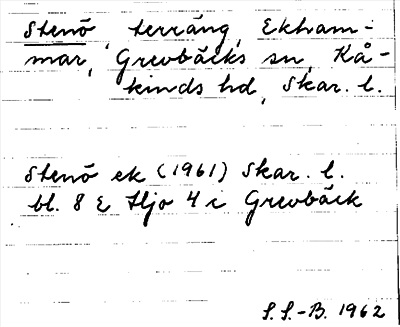 Stenö, terräng, Ekham-
mar, Grevbäcks sn, Kå-
kinds hd, Skar. l.
Stenö ek (1961) Skar. l.
bl. 8 E Hjo 4 i Grevbäck
S.S.-B. 1962